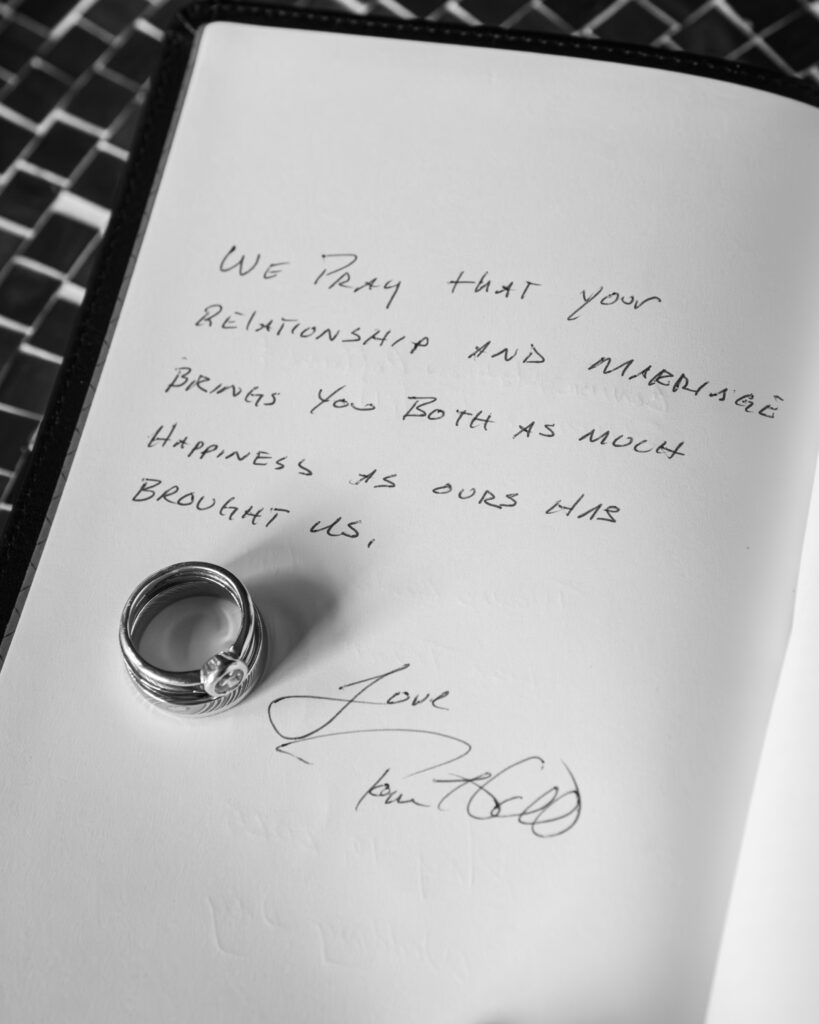 WE PRAY tHAT YOUR
RELATIONSHIP AND MARRIAGE
BRINGS YOU BOTH AS MUCH
HAPPINESS AS OURS HAS
BROUGHT US.
Love